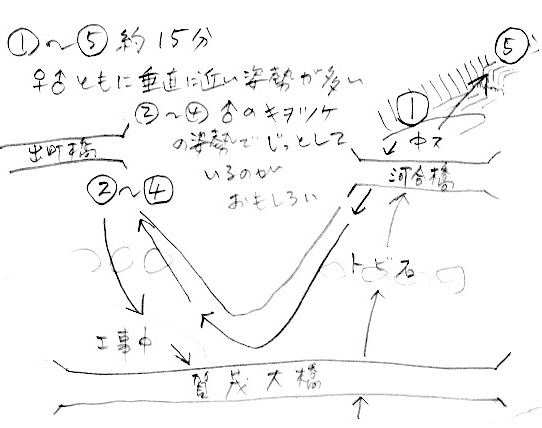 ①〜⑤ 約15分
♀♂ともに垂直に近い姿勢が多い
②〜④ ♂のキヲツケ
の姿勢でじっとして
いるのが
おもしろい
⑤
①
中ス
出町橋
河合橋
②〜④
トビ石
工事中
賀茂大橋